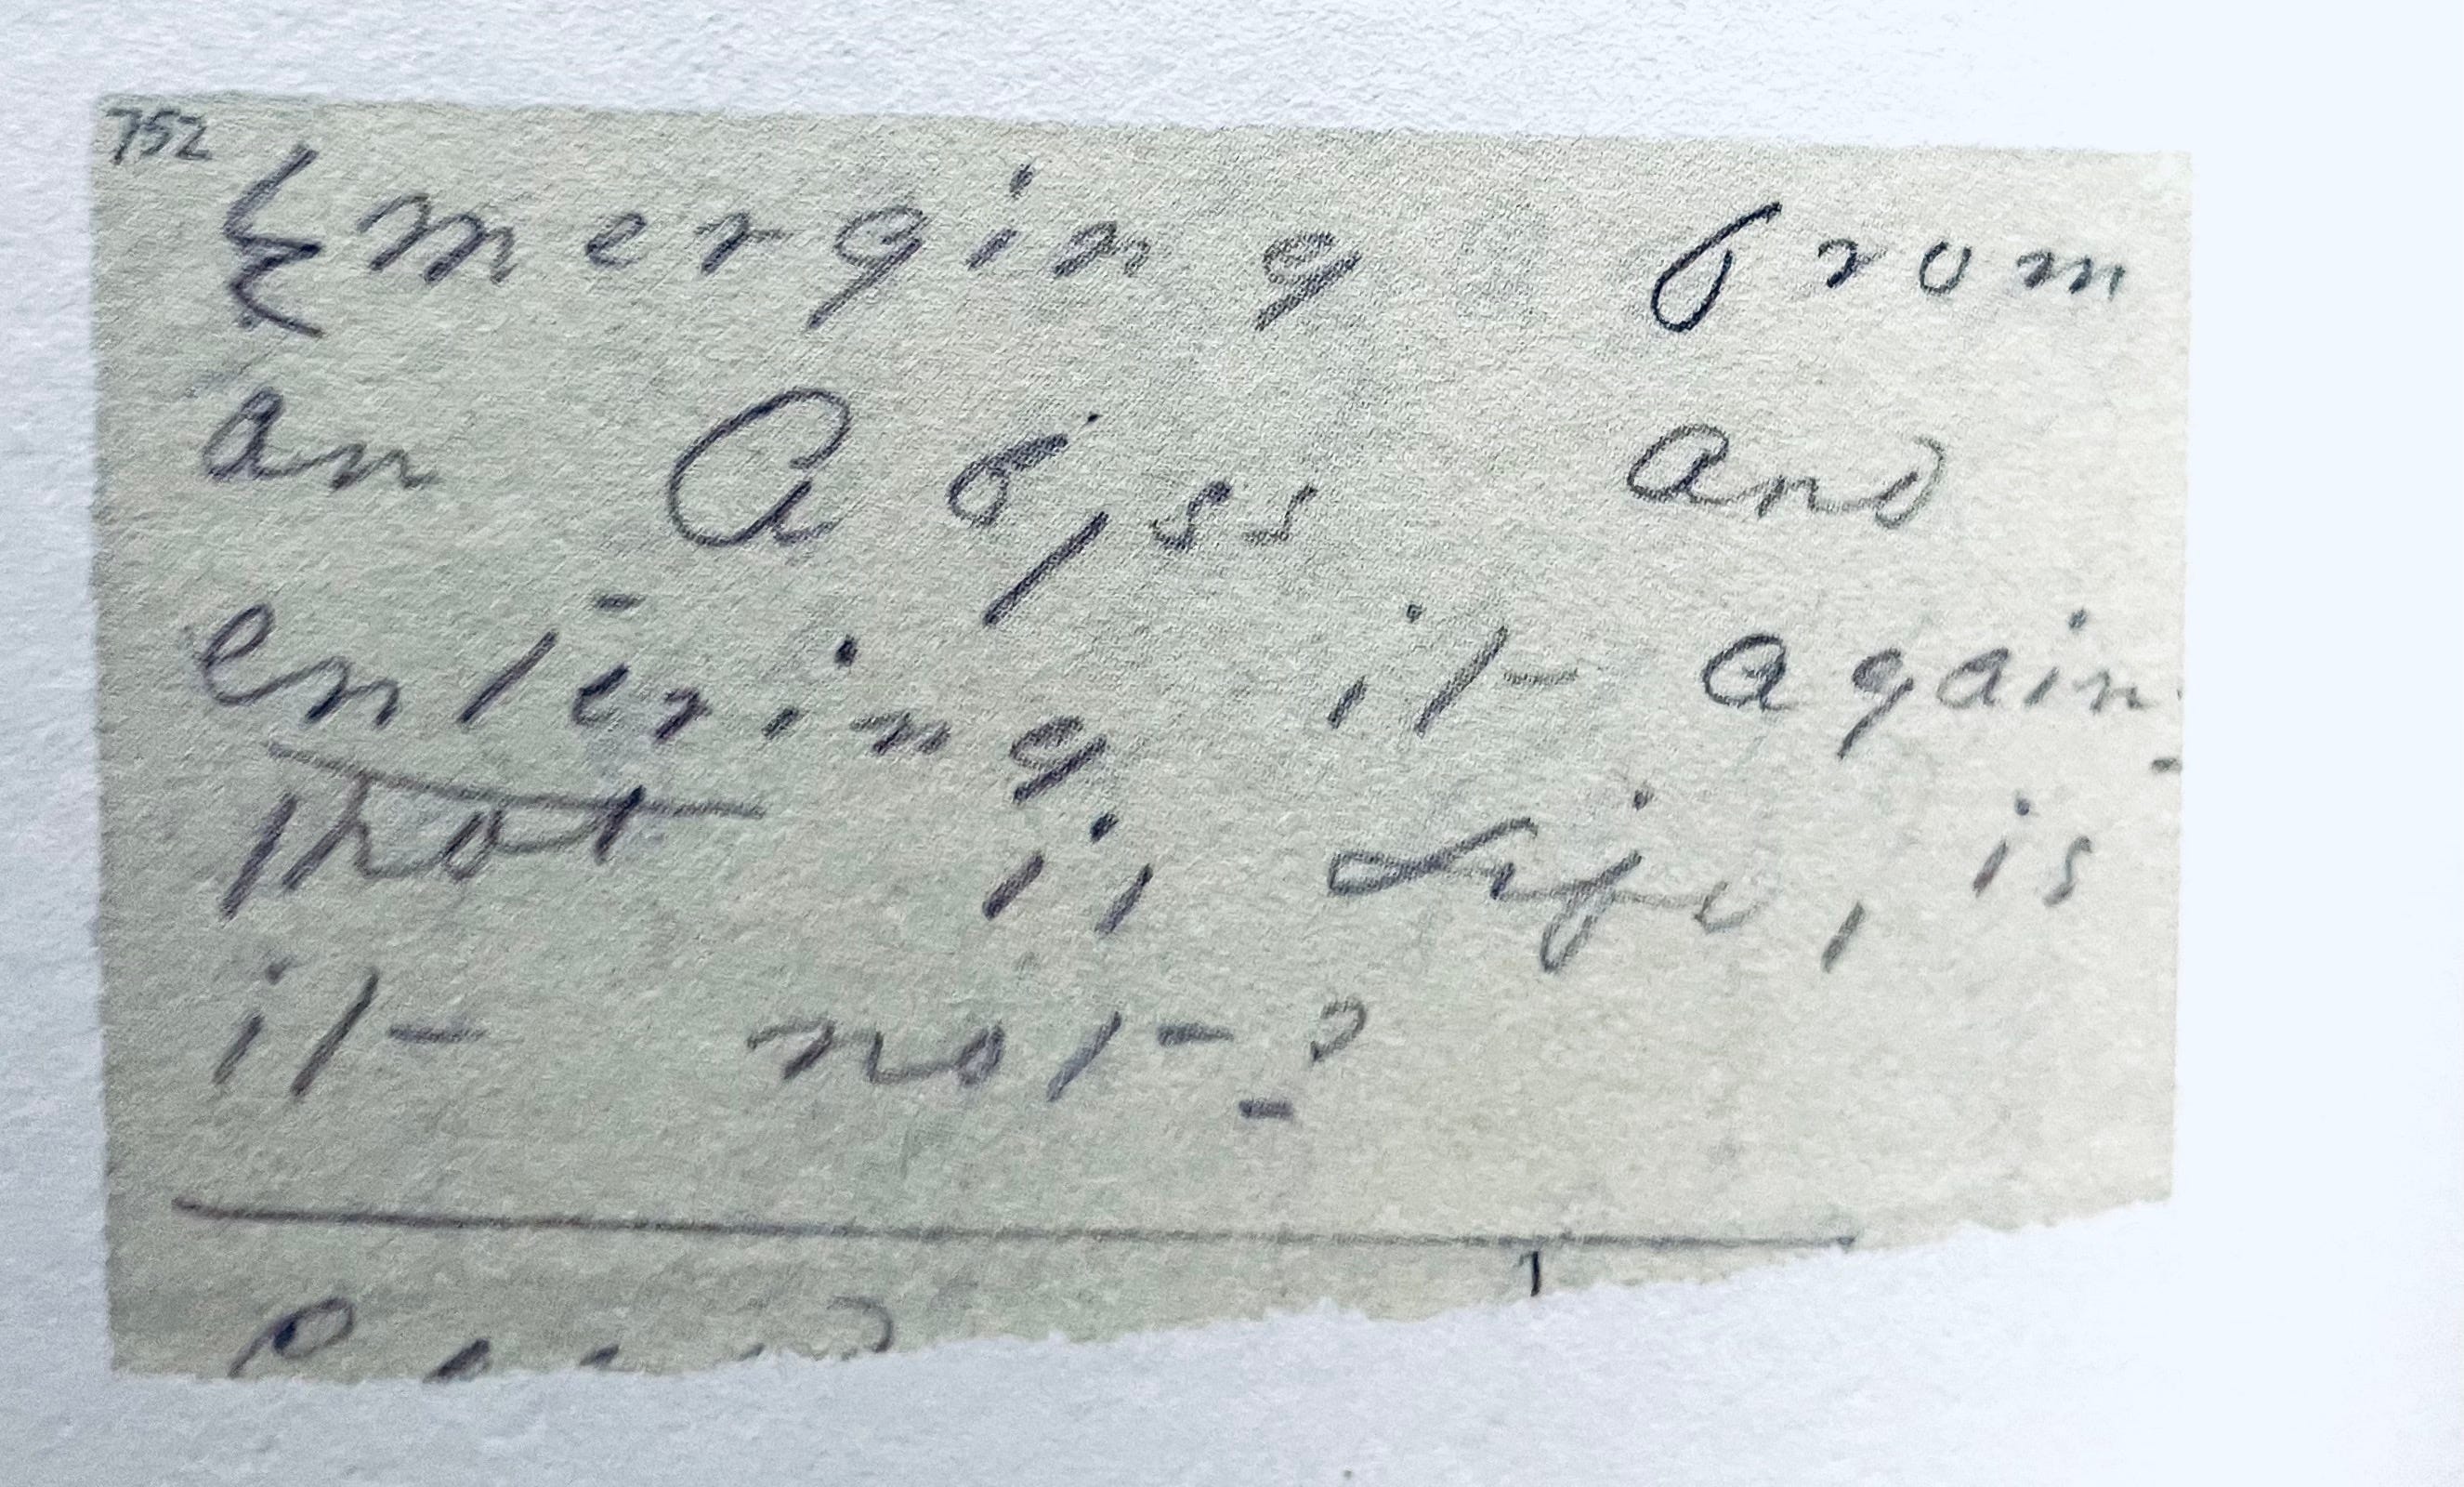 752
Emerging from
an Abyss and
entering it again -
that is Life, is
it not - ?